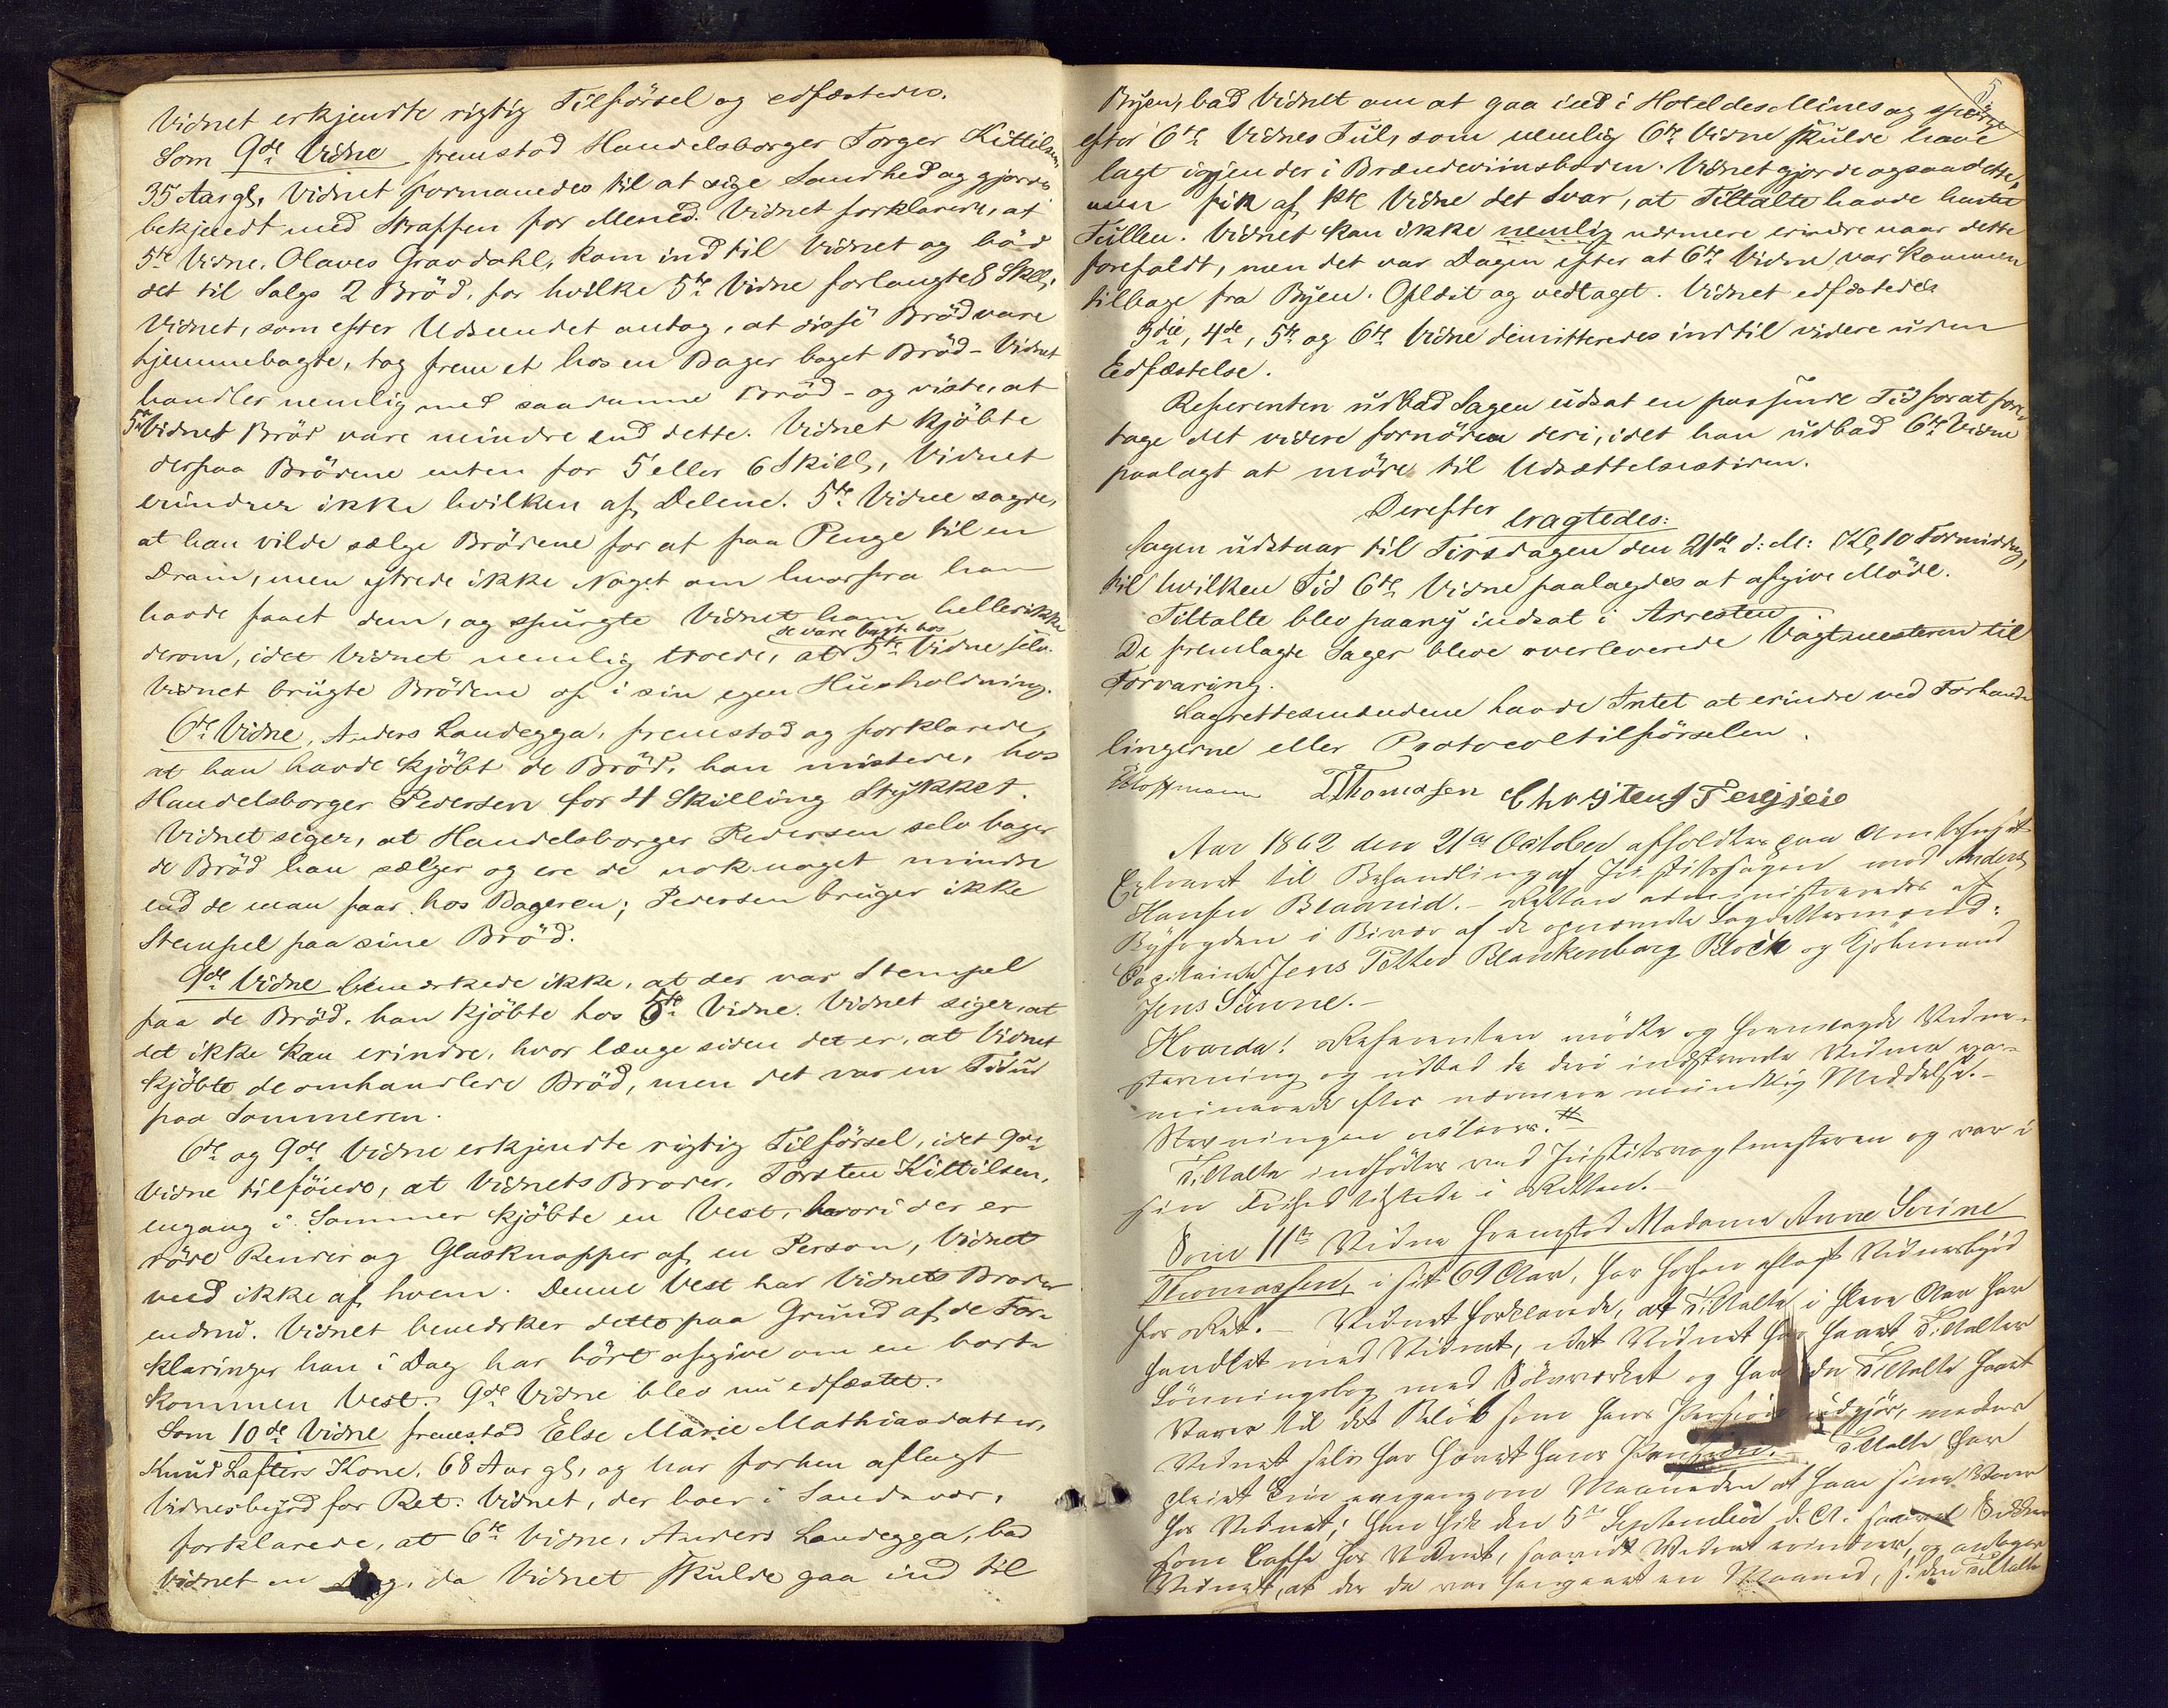 Vidnet erkjendte rigtig Tilførsel og edfæstedes.
Som 9de Vidne fremstod Handelsborger Torger Kittilsen,
35 Aar gl. Vidnet formanedes til at sige Sandhed og gjordes
bekjendt med Straffen for Meened. Vidnet forklarede, at
5te Vidne, Olaves Gravdahl, kom ind til Vidnet og bød
det til Salgs 2 Brød, for hvilke 5te Vidne forlangte 8 Skill.
Vidnet, som efter Udseendet antog, at disse Brød vare
hjemmebagte, tog frem et hos en Bager baget Brød - Vidnet
handler nemlig med saadanne Brød - og viste, at
5te Vidnes Brød vare mindre end dette. Vidnet kjøbte
derpaa Brødene enten for 5 eller 6 Skill, Vidnet
erindrer ikke hvilken af Delene. 5te Vidne sagde,
at han vilde sælge Brødene for at faa Penge til en
Dram, men ytrede ikke Noget om hvorfra han
havde faaet dem, og spurgte Vidnet ham heller ikke
derom, idet Vidnet nemlig troede, at de vare bagt hos 5te Vidne selv.
Vidnet brugte Brødene op i sin egen Husholdning.
6te Vidne, Anders Landegga, fremstod og forklarede,
at han havde kjøbt de Brød, han mistede, hos
Handelsborger Pedersen for 4 Skilling Stykket.
Vidnet siger, at Handelsborger Pedersen selv bager
de Brød han sælger og ere de nok noget mindre
end de man faar hos Bageren; Pedersen bruger ikke
Stempel paa sine Brød.
9de Vidne bemærkede ikke, at der var Stempel
paa de Brød, han kjøbte hos 5te Vidne. Vidnet siger, at
det ikke kan erindre, hvor længe siden det er, at Vidnet
kjøbte de omhandlede Brød, men det var en Tid ud
paa Sommeren.
6te og 9de Vidne erkjendte rigtig Tilførsel, idet 9de
Vidne tilføiede, at Vidnets Broder, Torsten Kittilsen,
engang i Sommer kjøbte en Vest, hvori der er
røde Render og Glasknapper af en Person, Vidnet
veed ikke af hvem. Denne Vest har Vidnets Broder
endnu. Vidnet bemærker dette paa Grund af de For-
klaringer han i Dag har hørt afgive om en bort-
kommen Vest. 9de Vidne blev nu edfæstet.
Som 10de Vidne fremstod Else Marie Mathiasdatter,
Knud Lafters Kone, 68 Aar gl, og har forhen aflagt
Vidnesbyrd for Ret. Vidnet, der boer i Sandsvær,
forklarede, at 6te Vidne, Anders Landegga, bad
Vidnet en Dag, da Vidnet skulde gaa ind til
5
Byen, bad Vidnet om at gaa ind i Hotel des Mines og spørge
efter 6te Vidnes Tul, som nemlig 6te Vidne skulde have
lagt igjen der i Brændeviinsboden. Vidnet gjorde ogsaa dette,
men fik af Vidne det Svar, at Tiltalte havde hentet
Tullen. Vidnet kan ikke nemlig nærmere erindre naar dette
forefaldt, men det var Dagen efter at 6te Vidne var kommen
tilbage fra Byen. Oplæst og vedtaget. Vidnet edfæstedes
3die, 4de, 5te og 6te Vidne demitteredes indtil videre uden
Edfæstelse.
Referenten udbad Sagen udsat en passende Tid for at fore-
tage det videre fornødne deri, idet han udbad 6te Vidne
paalagt at møde til Udsættelsestiden.
Derefter eragtedes:
Sagen udstaar til Tirsdagen den 21de d: M: Kl 10 Formiddag,
til hvilken Tid 6te Vidne paalagdes at afgive Møde.
Tiltalte blev paany indsat i Arresten.
De fremlagte Sager bleve overleverede Vagtmesteren til
Forvaring.
Lagrettesmændene havde Intet at erindre ved Forhand-
lingerne eller Protocoltilførselen.
TThomasen
Aar 1862 den 21de October afholdtes paa
Extraret til Behandling af Justitssagen mod Anders
Hansen Blaarud. - Retten administreredes af
Byfogden i Bivær af de opnævnte Lagrettesmænd:
Capitaine Jens Petter Blankenborg Block og Kjøbmand
Jens Sünne. -
Hvorda! Referenten mødte og fremlagde Vidne-
stævning og udbad de deri indstævnte Vidner exa-
minerede efter nærmere mundtlig Meddelelse. -
Stævningen
Tiltalte indførtes ved Justitsvagtmesteren og var i
sin Frihed tilstede i Retten. -
Som 11te Vidne fremstod Madame Anne Sirine
Thomassen, i sit 69 Aar, har forhen aflagt Vidnesbyrd
for Ret. - Vidnet forklarede, at Tiltalte i flere Aar har
handlet med Vidnet, idet Vidnet har havt Tiltaltes
Lønningsbog med Sølvværket og har da Tiltalte faaet
Varer til det Beløb som hans Pension udgjør, medens
Vidnet selv har hævet hans Pension. - Tiltalte har
pleiet komme engang om Maaneden at faae sine Varer
hos Vidnet; han fik den 5te September d. A. saavel Sukker
som Caffe hos Vidnet, saavidt Vidnet erindrer, og antager
Vidnet, at der da var hengaaet en Maaned, siden Tiltalte